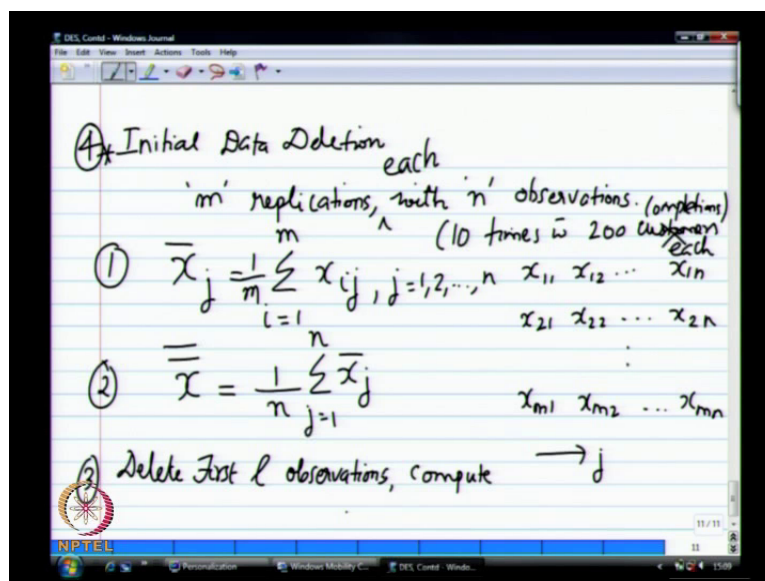 DES, Contd - Windows Journal
File Edit View Insert Actions Tools Help
④* Initial Data Deletion
'm' replications, each with 'n' observations. (completions)
(10 times w 200 customers each
① x̄_j = 1/m Σ_{i=1}^{m} x_{ij}, j=1,2,...,n
x_{11} x_{12} ... x_{1n}
x_{21} x_{22} ... x_{2n}
⋮
② x̿ = 1/n Σ_{j=1}^{n} x̄_j
x_{m1} x_{m2} ... x_{mn}
③ Delete First l observations, compute → j
NPTEL
11 / 11
11
Personalization
Windows Mobility C...
DES, Contd - Windo...
15:09